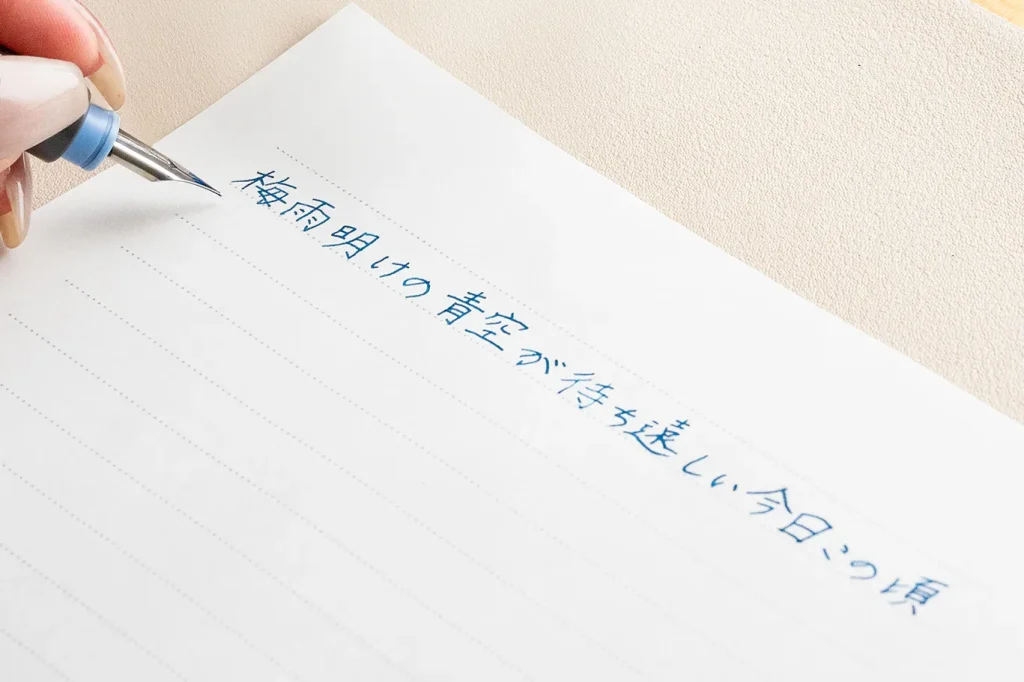 梅雨明けの青空が待ち遠しい今日この頃